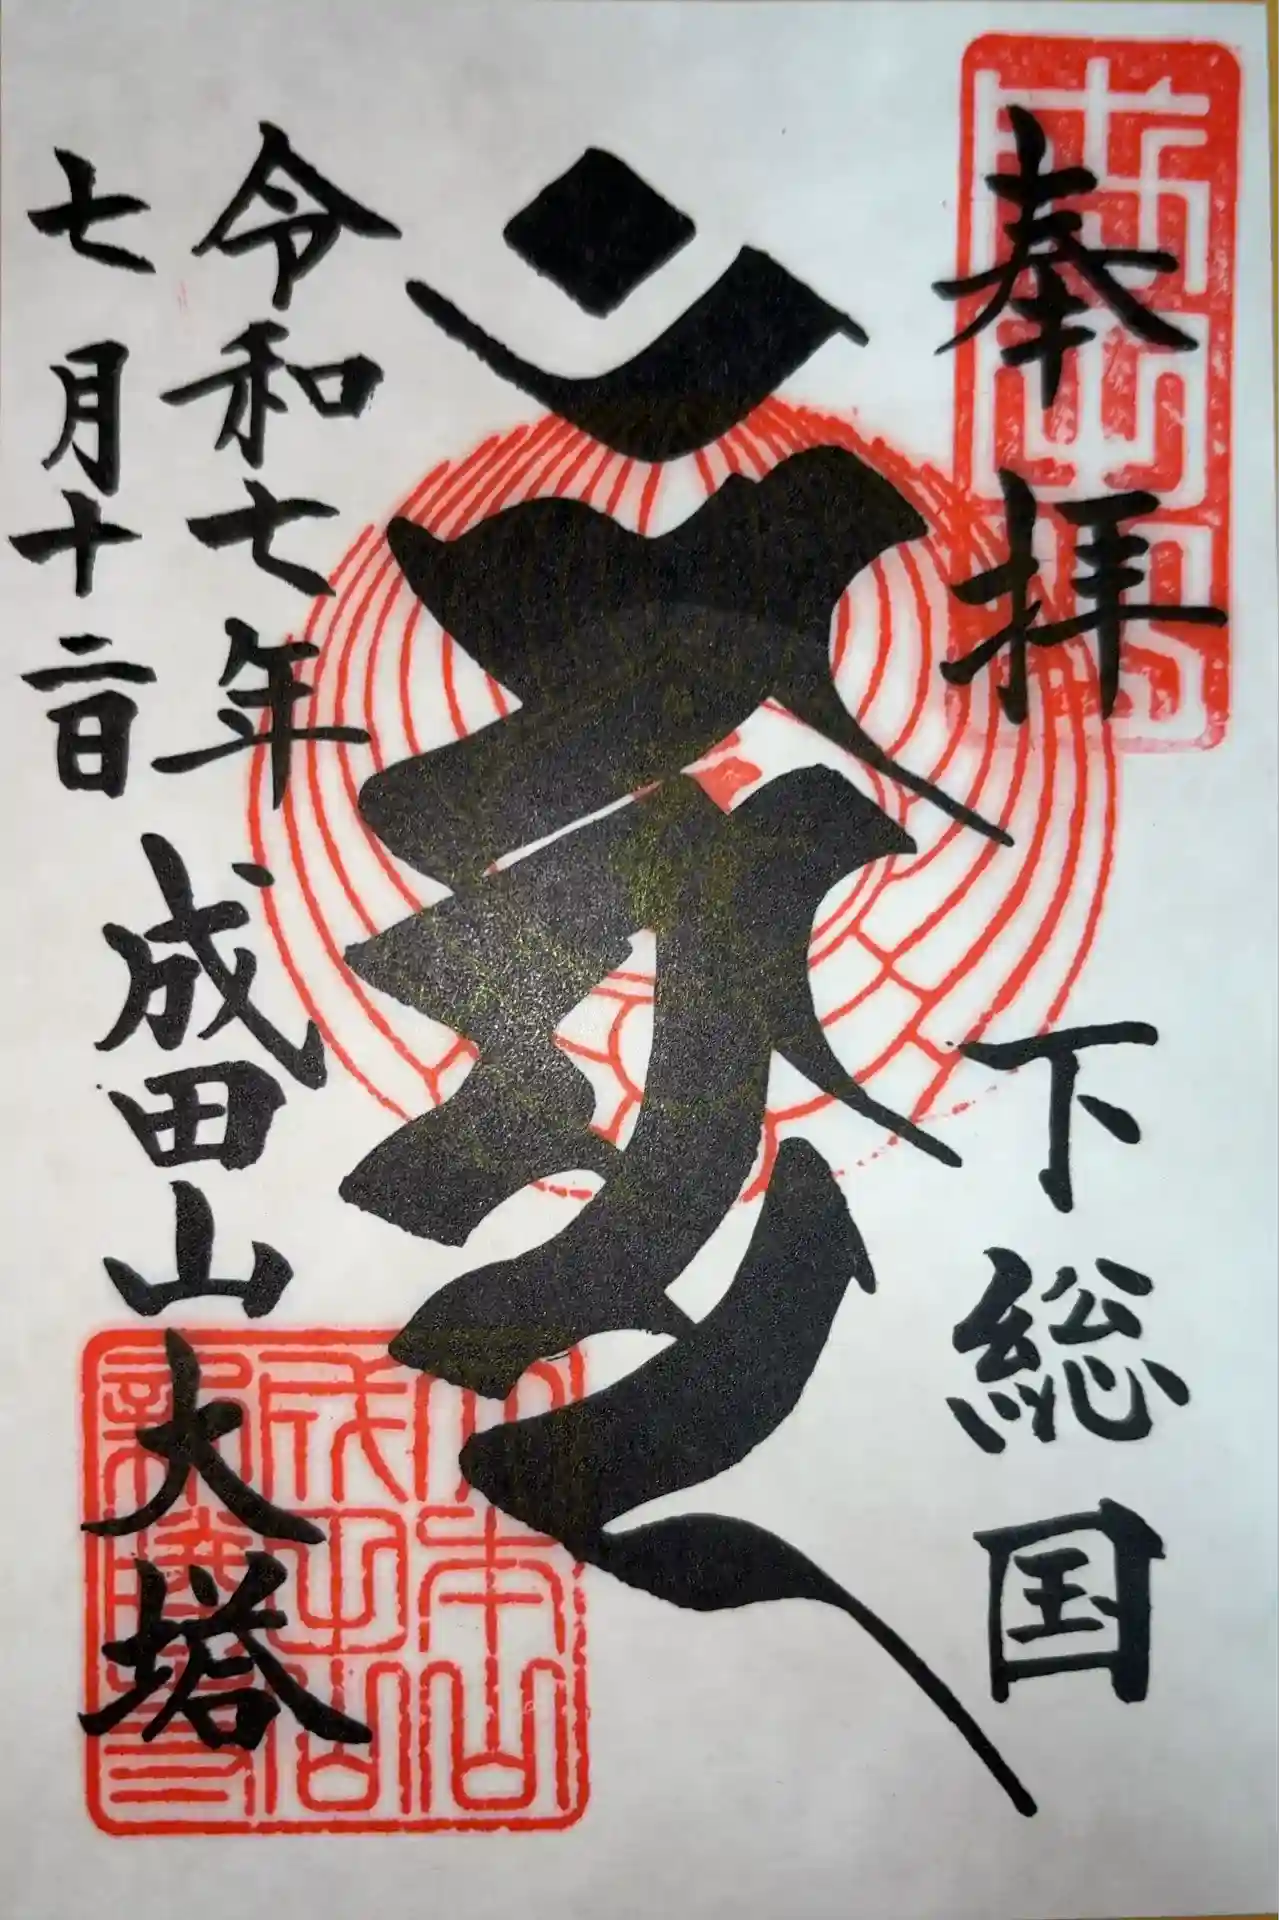 奉拝
下総国
令和七年
七月十二日
成田山大塔